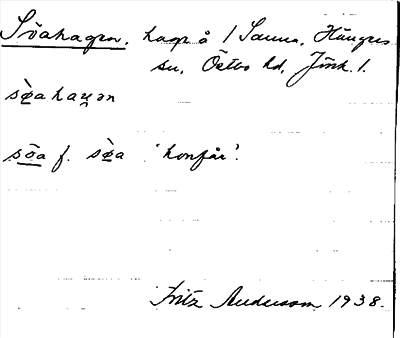 Söahagen, hage å 1 Sanna, Hångers
sn, Östbo hd, Jönk. l.
sø̀ahaɡən
söa f. sø̀a 'honfår'.
Fritz Anderson 1938.